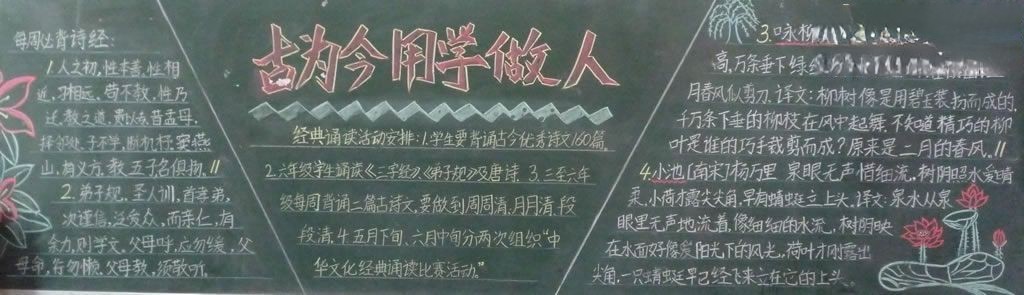 每周必背诗经:
1人之初,性本善,性相
近,习相远。苟不教,性乃
迁,教之道,贵以专昔孟母,
择邻处,子不学,断机杼,窦燕
山,有义方,教五子名俱扬,
2.弟子规,圣人训,首孝弟,
次谨信,泛爱众,而亲仁,有
余力,则学文,父母呼,应勿缓,父
母命,行勿懒,父母教,须敬听
古为今用学做人
经典诵读活动安排:1.学生要背诵古今优秀诗文160篇,
2.六年级学生诵读《三字经》《弟子规》及唐诗.3.三至六年
级每周背诵二篇古诗文,要做到周周清,月月清,段
段清.4.五月下旬、六月中旬分两次组织“中
华文化经典诵读比赛活动。”
3.咏柳
高,万条垂下绿
月春风似剪刀.译文:柳树像是用碧玉装扮而成的,
千万条下垂的柳枝在风中起舞.不知道精巧的柳
叶是谁的巧手裁剪而成?原来是二月的春风。
4.小池[南宋]杨万里 泉眼无声惜细流,树阴照水爱晴
柔,小荷才露尖尖角,早有蜻蜓立上头.译文:泉水从泉
眼里无声地流着,像细细的水流,树阴映
在水面好像爱阳光下的风光,荷叶才刚露出
尖角,一只蜻蜓早已经飞来立在它的上头.